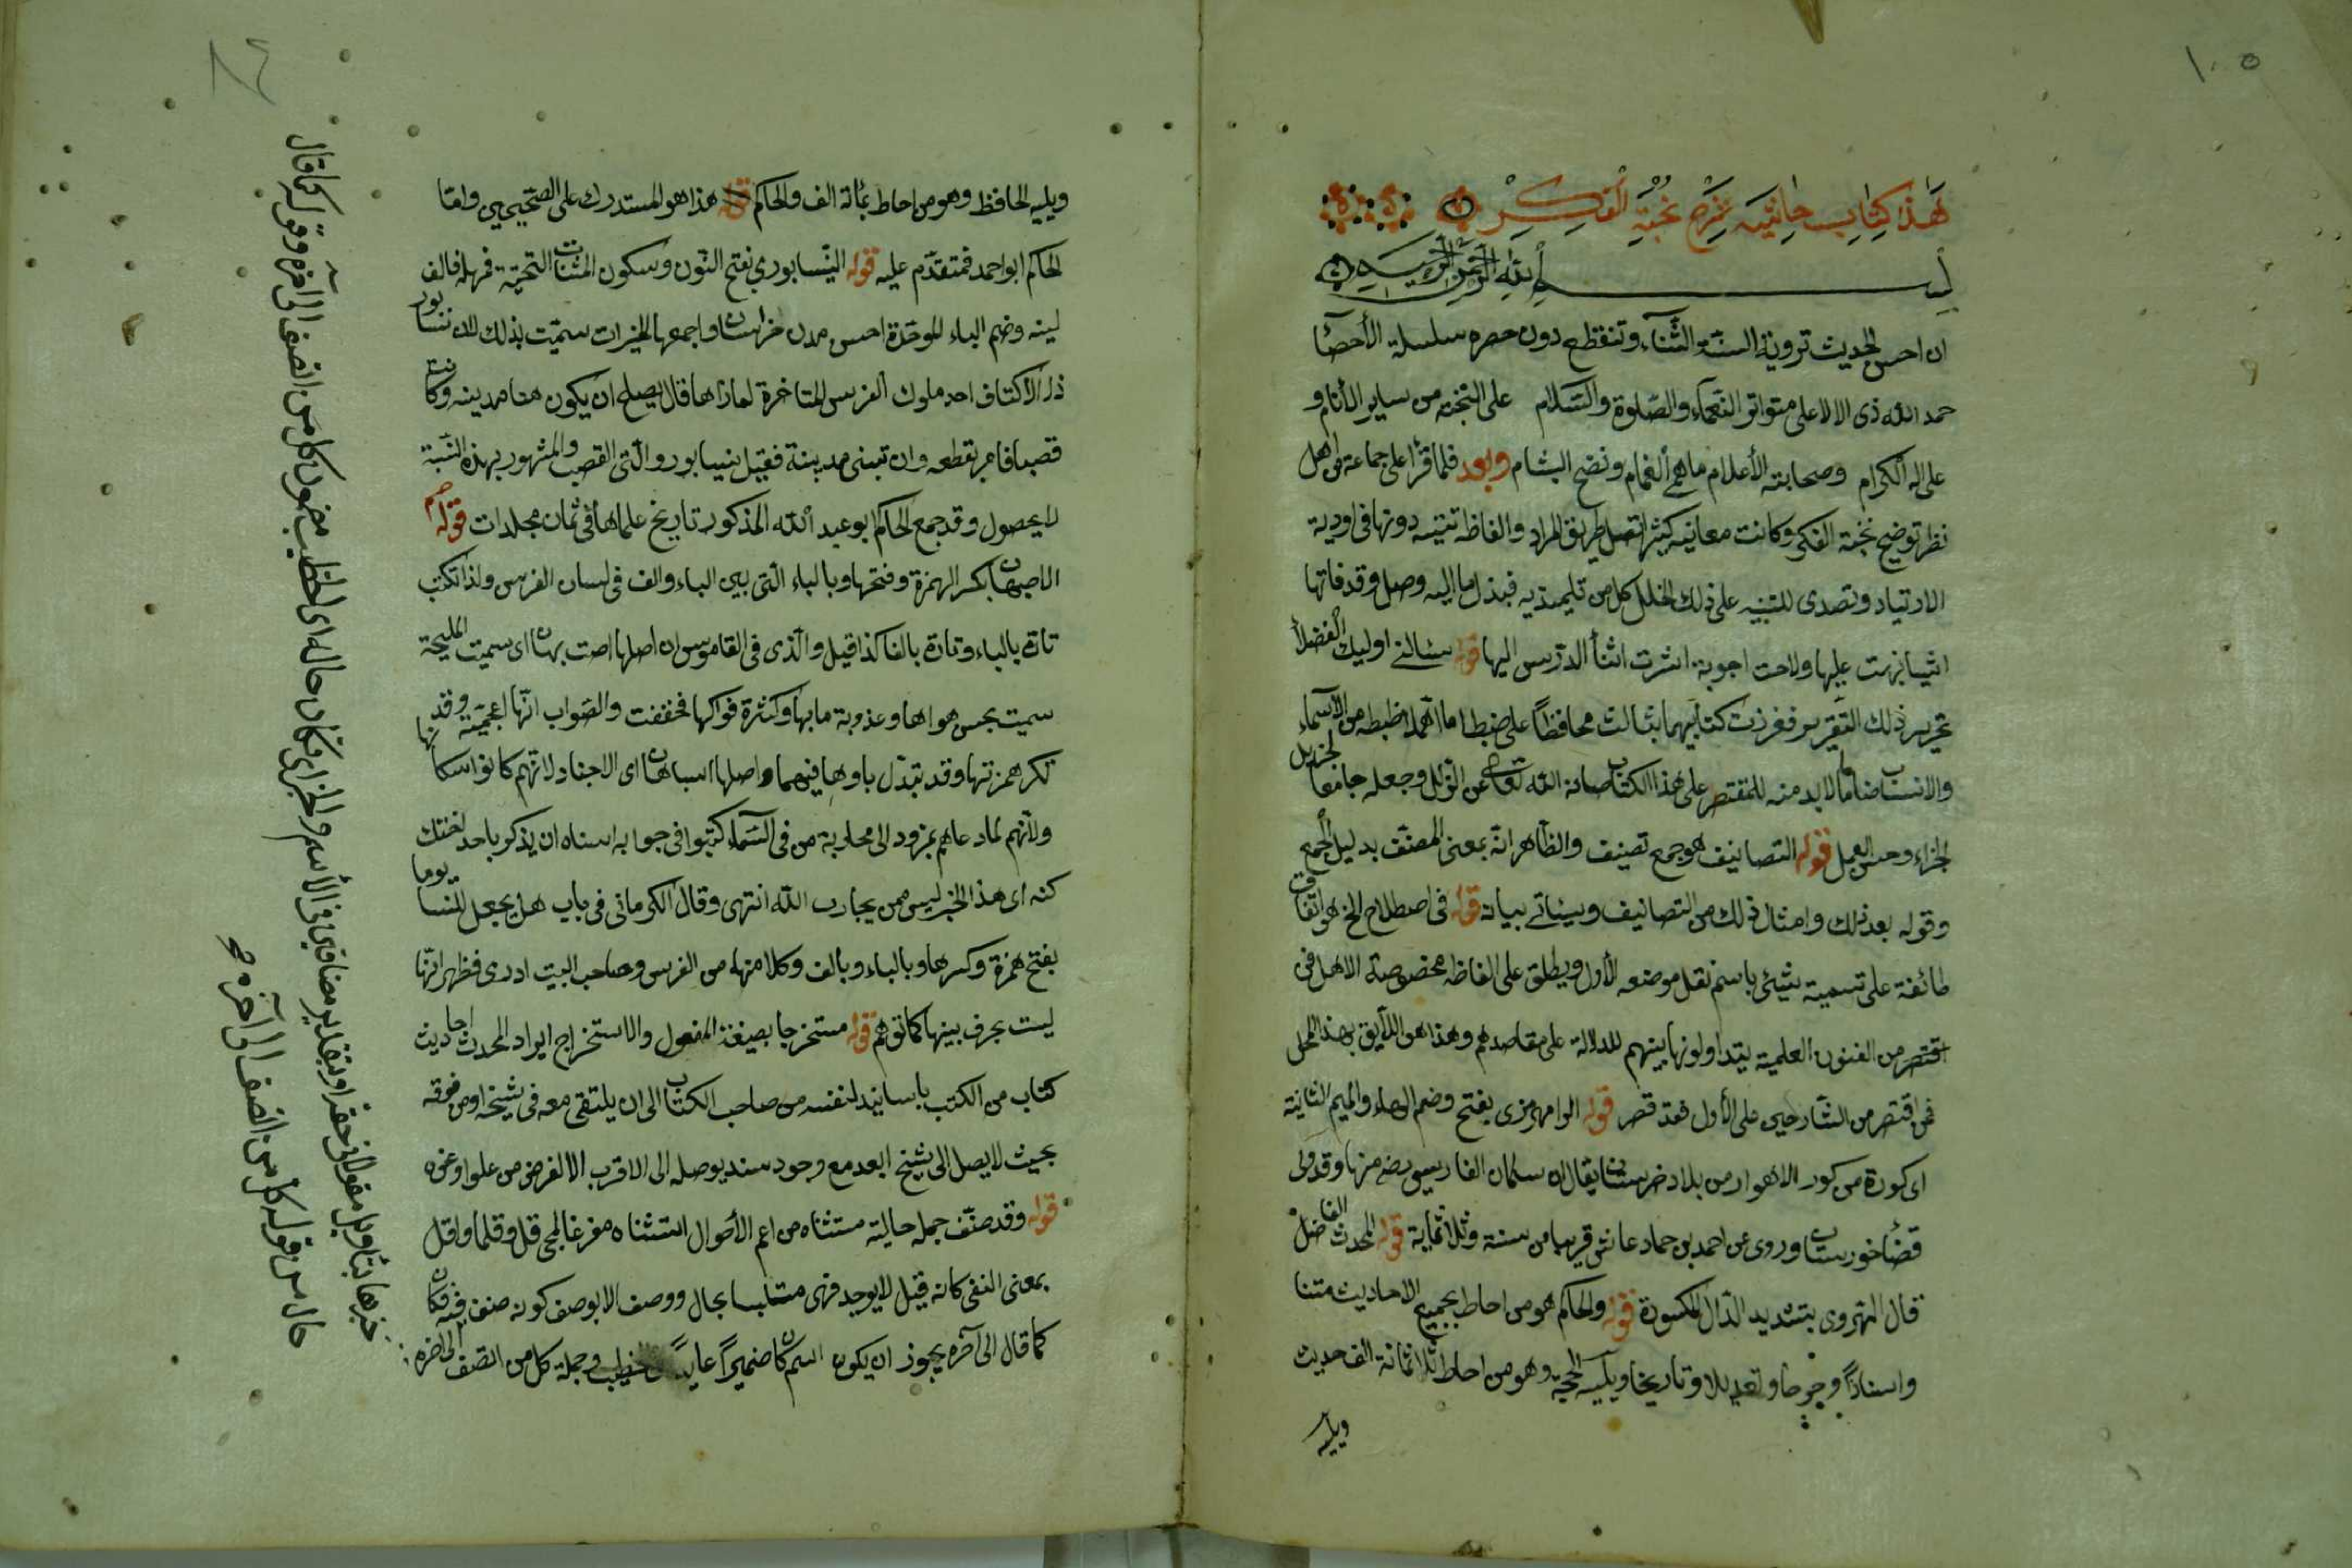 ١٠٥
هذا كتاب حاشية شرح نخبة الفكر
بسم الله الرحمن الرحيم
ان احسن الحديث ترويه السنة الثناء وتنقطع دون حصره سلسلة الأحصا
حمد الله ذى الالا على متواتر النعماء والصلوة والسلام على النخبة من ساير الأنام و
على اله الكرام وصحابته الأعلام ما همع الغمام ونضح البشام وبعد فلما قرا على جماعة من اهل
نظر توضيح نخبة الفكر وكانت معانيه كثيرا تضل طريق المراد والفاظه تتيه دونها فى اودية
الارتياد وتصدى للتنبيه على ذلك الخلل كل من تلميذيه فبذل ما اليه وصل وقد فاتها
اشيا نبهت عليها ولاحت اجوبة اشرت اثنأ الدرس اليها قوله سئالنى اوليك الفضلأ
تحرير ذلك التقرير فعززت كتابيهما بثالث محافظا على ضبط ما اهملا ضبطه من الاسماء
والانساب ضاما ما لا بد منه للمقتصر على هذا الكتاب صانه الله تعالى عن الزلل وجعله جامعا لجزيل
الجزاء وحسن العمل قوله التصانيف هو جمع تصنيف والظاهر انه بمعنى المصنف بدليل الجمع
وقوله بعد ذلك وامثال ذلك من التصانيف وسيناتى بيانه قوله فى اصطلاح الخ هو اتفاق
طائفة على تسمية شيئى باسم نقل موضعه الأول ويطلق على الفاظ مخصوصة الاهل فن
من الفنون العلمية يتداولونها بينهم للدلالة على مقاصدهم وهذا هو اللايق بهذا المحل
فمن اقتصر من الشارحين على الأول فقد قصر قوله الرامهرمزى بفتح وضم الهاء والميم الثانية
اى كورة من كور الاهواز من بلاد خرستان يقال ان سلمان الفارسى رضه منها وقد ولى
قضأ خورستان وروى عن احمد بن حماد عاش قريبا من سنة وثلاثماية قوله المحدث الفاضل
قال الهروى بتشديد الدال المكسورة قوله والحاكم هو من احاط بجميع الاحاديث متنا
واسنادا وجرحا وتعديلا وتاريخا ويليه الحجة وهو من احاط بثلاثمائة الف حديث
ويليه
ويليه الحافظ وهو من احاط بمائة الف والحاكم قوله هذا هو المستدرك على الصحيحين واما
الحاكم ابو احمد فمتقدم عليه قوله النيسابورى بفتح النون وسكون المثنات التحتية فمهملة فالف
لينه وضم الباء الموحدة احسن مدن خراسان واجمعها للخيرات سميت بذلك لان سابور
ذا الاكتاف احد ملوك الفرس المتاخرة لما راها قال يصلح ان يكون هنا مدينه وكانت
قصبا فامر بقطعه وان تبنى مدينة فقيل نيسابور والنى القصب والمشهور بهذه النسبة
لا يحصون وقد جمع الحاكم ابو عبد الله المذكور تاريخ علماها فى ثمان مجلدات قوله
الاصبهان بكسر الهمزة وفتحها وبالباء التى بين الباء والف فى لسان الفرس ولذا تكتب
تارة بالباء وتارة بالفا كذا قيل والذى فى القاموس ان اصلها اصت بهان اى سميت المليحة
سميت بحسن هواها وعذوبة مايها وكثرة فواكها فخففت والصواب انها اعجمية وقد
تكسر همزتها وقد تبدل باوها فيهما واصلها اسباهان اى الاجناد لانهم كانوا سكانها
ولانهم لما دعاهم نمرود الى محاربة من فى السماء كتبوا فى جوابه اسناه ان
كنه اى هذا الجند ليس ممن يحارب الله انتهى وقال الكرمانى فى باب هل يجعل للنسا يوما
بفتح همزة وكسرها وبالباء وبالف وكلا منها من الفرس وصاحب البيت ادرى فظهر انها
ليست بحرف بينها كما توهم قوله مستخرجا بصيغة المفعول والاستخراج ايراد المحدث احاديث
كتاب من الكتب باسانيد لنفسه من صاحب الكتاب الى ان يلتقى معه فى شيخه او من فوقه
بحيث لا يصل الى شيخ ابعد مع وجود سند يوصله الى الاقرب الا لغرض من علو او غيره
قوله وقد صنف جملة حالية مستثناه من اعم الأحوال استثناه مفرغا لمجى قل وقلما واقل
بمعنى النفى كانه قيل لا يوجد فهى متلبسا بحال ووصف الا بوصف كونه صنف فيه فكان
كما قال الى آخره يجوز ان يكون اسم كان ضميرا عايدا الخطيب وجملة كل من انصف الى اخره
خبرها بتاويل مقول فى حقه او بتقدير مضاف فى الاسم والخبر اى فكان حاله اى الخطيب مضمون كل من انصف الى آخره وقوله كما قال
حال من قوله كل من انصف الى آخره